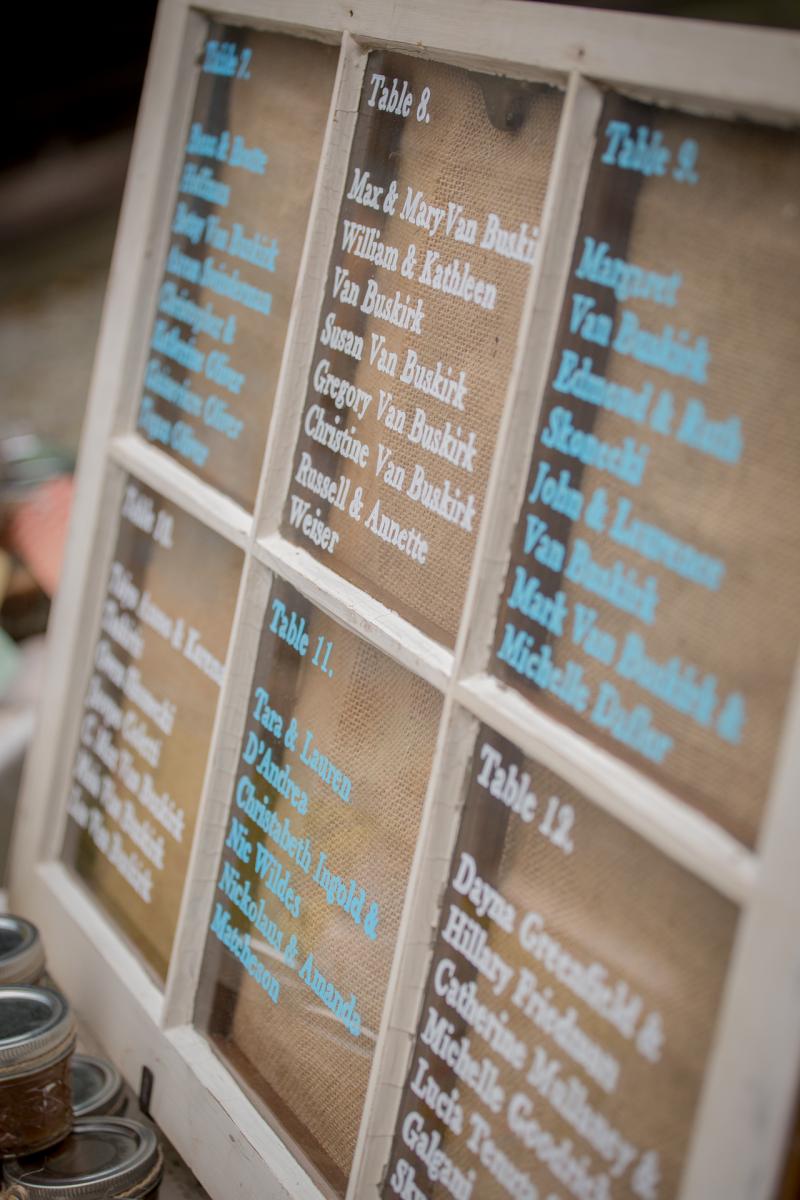 Table 7.
Hoffman
Van Buskirk
Christopher &
Katherine Oliver
Oliver
Oliver
Table 8.
Max & Mary Van Buski
William & Kathleen
Van Buskirk
Susan Van Buskirk
Gregory Van Buskirk
Christine Van Buskirk
Russell & Annette
Weiser
Table 9.
Margaret
Van Buskirk
Edmund & Ruth
Skonecki
John & Laurance
Van Buskirk
Mark Van Buskirk &
Michelle
Table 10.
Anne &
Van Buskirk
Van Buskirk
Van Buskirk
Table 11.
Tara & Lauren
D'Andrea
Christabeth Ingold &
Nic Wildes
Nickolaus & Amanda
Matcheson
Table 12.
Dayna Greenfield &
Hillary Friedman
Catherine Mulloney &
Michelle Goodrich
Lucia
Galgani